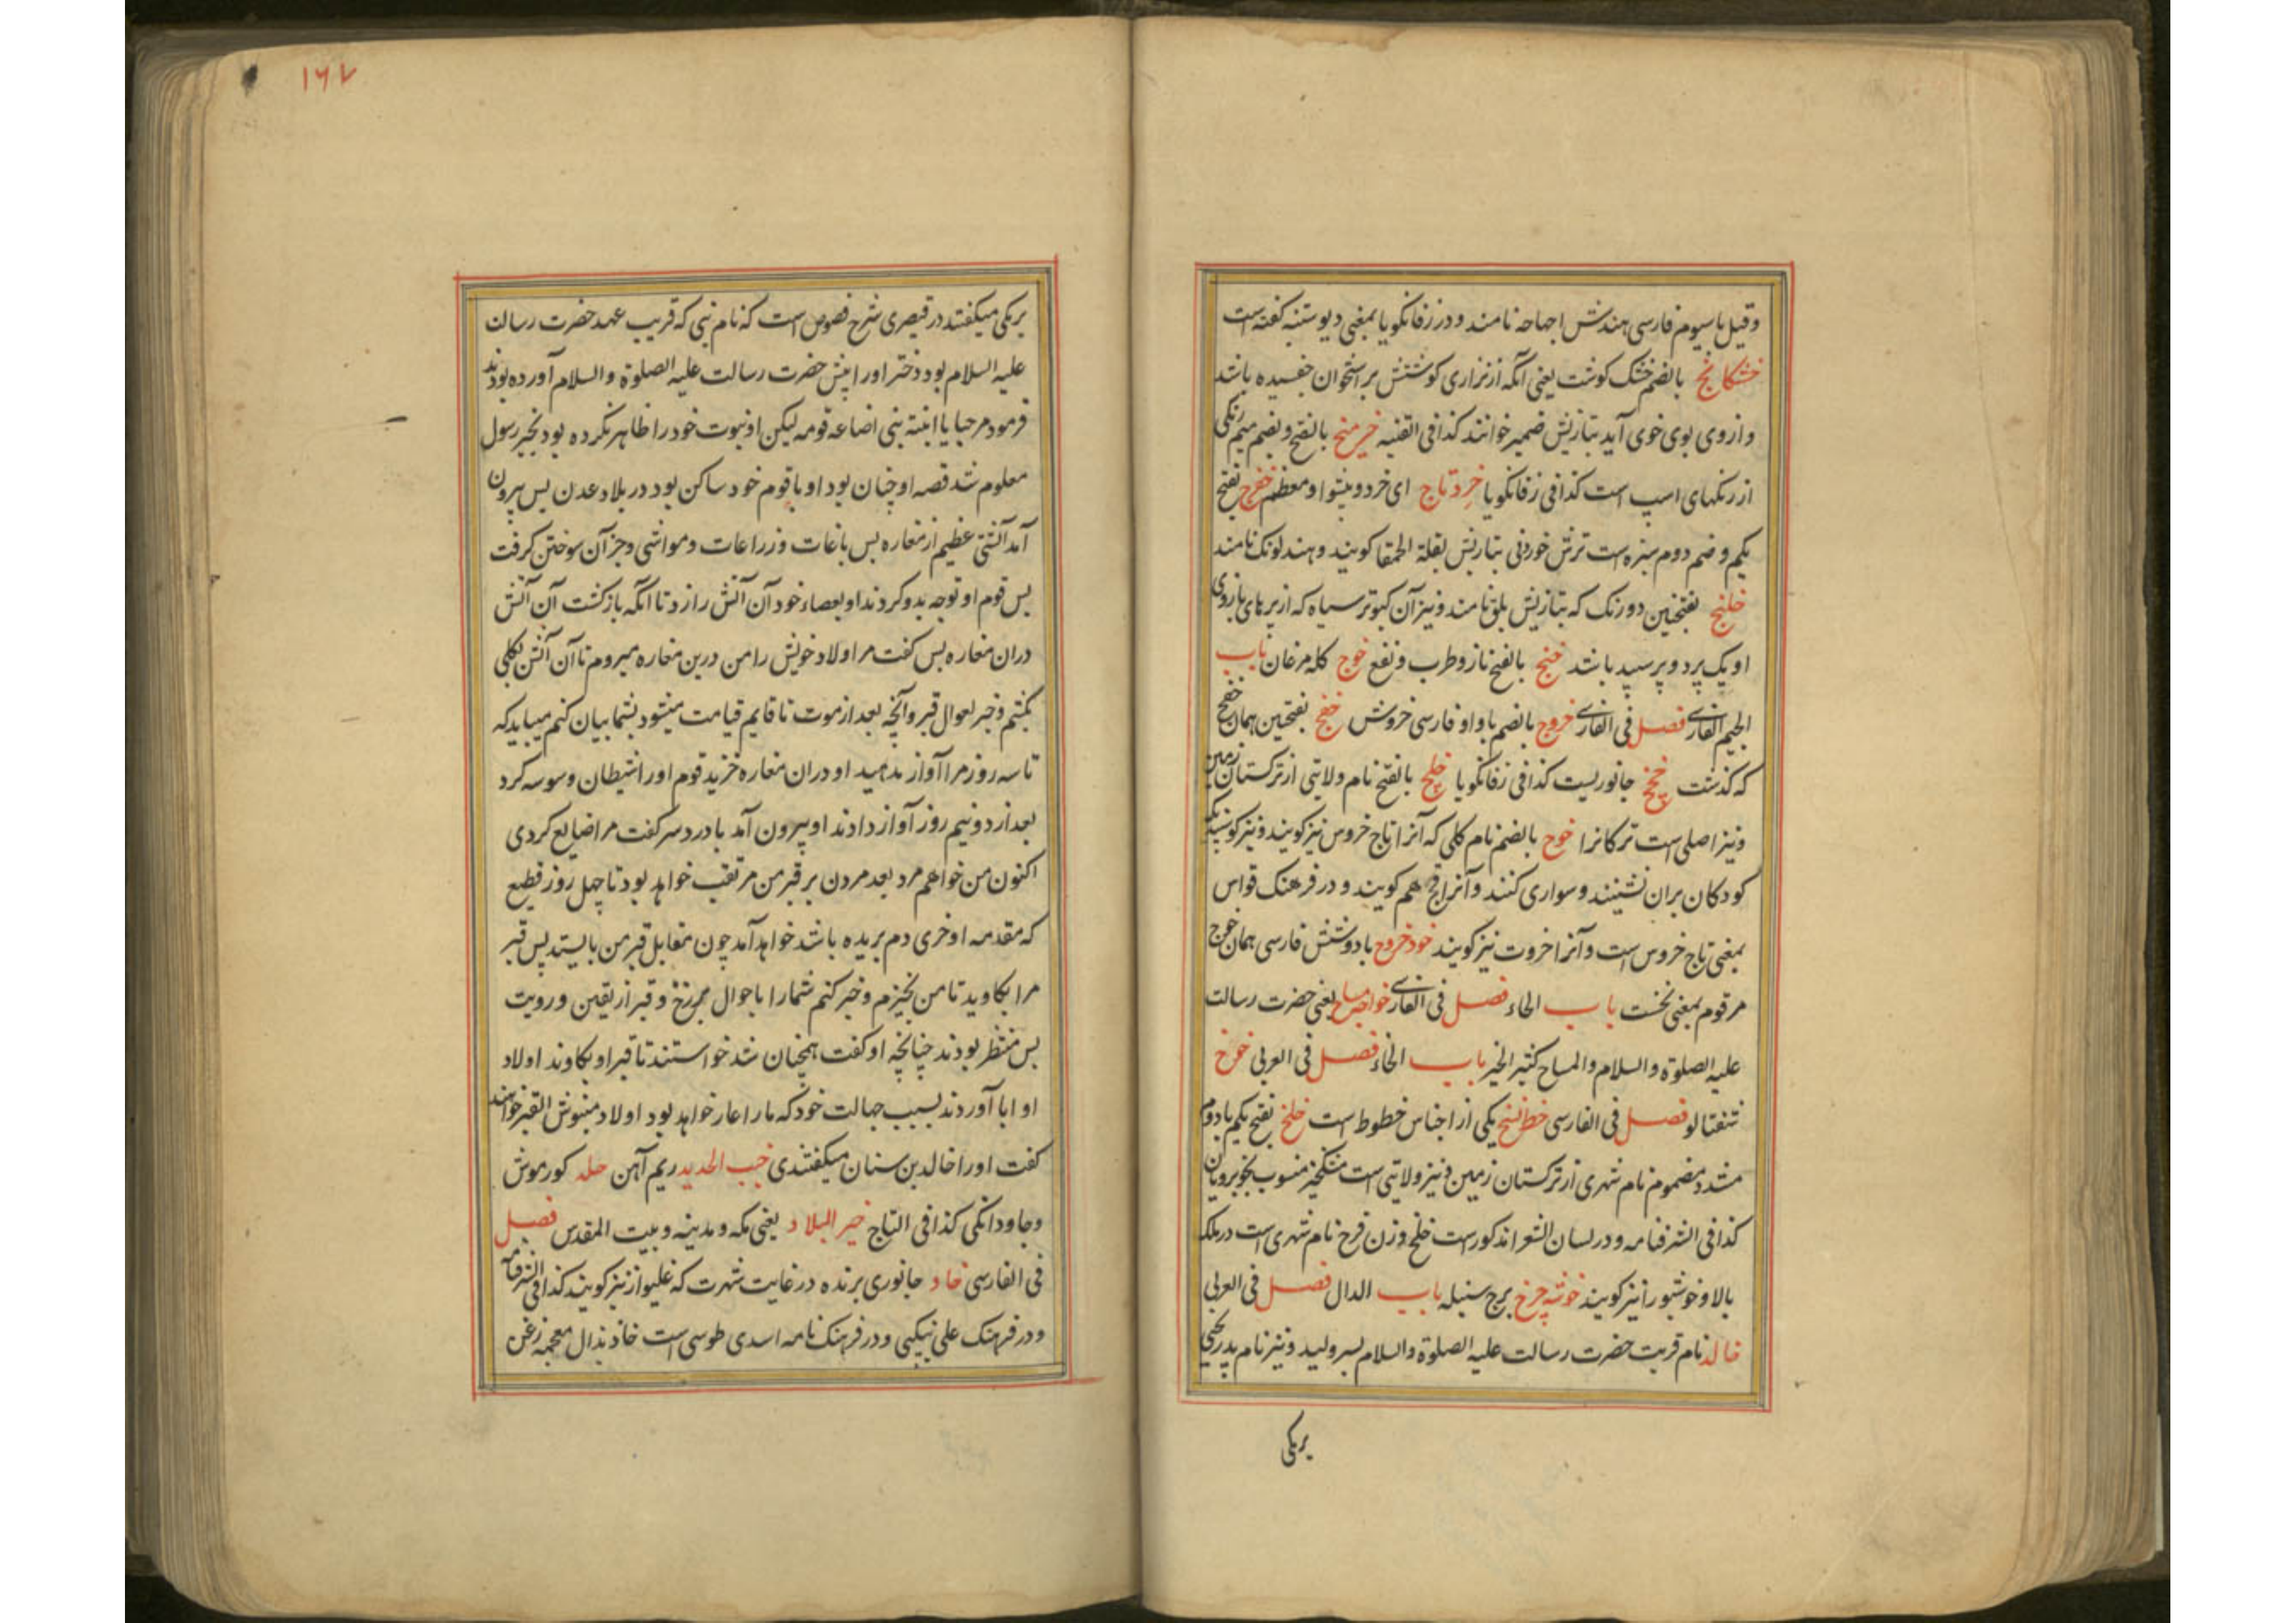 وقیل باسیوم فارسی هندش اجهاحه نامند و در زفانگویا بمعنی دیوستنبه گفته است
خشکانج بالضم خشک گوشت یعنی آنکه از نزاری گوشتش بر استخوان چفسیده باشد
و از وی بوی خوی آید بتازیش ضمیر خوانند کذا فی القنیه خرمنج بالفتح و بضم میم رنگی
از رنگهای اسپ است کذا فی زفانگویا خردتاج ای خرد و پیشوا و معظم خفرج بفتح
یکم و ضم دوم سبزه است ترش خوردنی بتازیش بقلة الحمقا گویند و هند لونک نامند
خلنج بفتحتین دو رنگ که بتازیش بلق نامند و نیز آن کبوتر سیاه که از پرهای بازوی
او یک پر دو پر سپید باشد خنج بالفتح ناز و طرب و نفع خوج کله مرغان باب
الجیم الفارسی فصل فی الفارسی خروج بالضم با واو فارسی خروش خفج بفتحتین همان خفج
که گذشت جانوریست کذا فی زفانگویا خلج بالفتح نام ولایتی از ترکستان زمین
و نیز اصلی است ترکانرا خوج بالضم نام گلی که آنرا تاج خروس نیز گویند و نیز گوسپند که
کودکان بران نشینند و سواری کنند و آنرا قچ هم گویند و در فرهنگ قواس
بمعنی تاج خروس است و آنرا خروت نیز گویند خودخروج با دو شش فارسی همان خوج
مرقوم بمعنی نخست باب الحاء فصل فی الفارسی خواجه مساح یعنی حضرت رسالت
علیه الصلوة والسلام والمساح کثیر الخیر باب الخاء فصل فی العربی خوخ
شفتالو فصل فی الفارسی خط نسخ یکی از اجناس خطوط است خلخ بفتح یکم با دوم
مشدد مضموم نام شهری از ترکستان زمین و نیز ولایتی است مشکخیز منسوب بخوبرویان
کذا فی الشرفنامه و در لسان الشعرا مذکور است خلخ وزن فرخ نام شهری است در ملک
بالا و خوشبو را نیز گویند خوشه چرخ برج سنبله باب الدال فصل فی العربی
خالد نام قریب حضرت رسالت علیه الصلوة والسلام پسر ولید و نیز نام پدر یحیی
برمکی
۱۶۷
برمکی میگفتند در قیصری شرح فصوص است که نام نبی که قریب عهد حضرت رسالت
علیه السلام بود دختر او را پیش حضرت رسالت علیه الصلوة والسلام آورده بودند
فرمود مرحبا یا ابنته نبی اضاعه قومه لیکن او نبوت خود را ظاهر نکرده بود بخبر رسول
معلوم شد قصه او چنان بود او با قوم خود ساکن بود در بلاد عدن پس بیرون
آمد آتشی عظیم از مغاره پس باغات و زراعات و مواشی و جز آن سوختن گرفت
پس قوم او توجه بدو کردند او بعصاء خود آن آتش را زد تا آنکه بازگشت آن آتش
دران مغاره پس گفت مر اولاد خویش را من درین مغاره میروم تا آن آتش بکلی
بکشم و خبر احوال قبر و آنچه بعد از موت تا قایم قیامت میشود بشما بیان کنم میباید که
تا سه روز مرا آواز ندهید او دران مغاره خزید قوم او را شیطان وسوسه کرد
بعد از دو نیم روز آواز دادند او بیرون آمد با درد سر گفت مرا ضایع کردی
اکنون من خواهم مرد بعد مردن بر قبر من مرتقب خواهد بود تا چهل روز قطیع
که مقدمه او خری دم بریده باشد خواهد آمد چون مقابل قبر من بایستد پس قبر
مرا بکاوید تا من بخیزم و خبر کنم شما را باحوال برزخ و قبر از یقین و رویت
پس منتظر بودند چنانچه او گفت همچنان شد خواستند تا قبر او بکاوند اولاد
او ابا آوردند بسبب جهالت خود که ما را عار خواهد بود اولاد منبوش القبر خواهند
گفت او را خالد بن سنان میگفتندی خبث الحدید ریم آهن خلد کورموش
و جاودانگی کذا فی التاج خیر البلاد یعنی مکه و مدینه و بیت المقدس فصل
فی الفارسی خاد جانوری پرنده در غایت شهرت که غلیواز نیز گویند کذا فی الشرفنامه
و در فرهنگ علی نیکپی و در فرهنگ نامه اسدی طوسی است خاذ بذال معجمه زغن